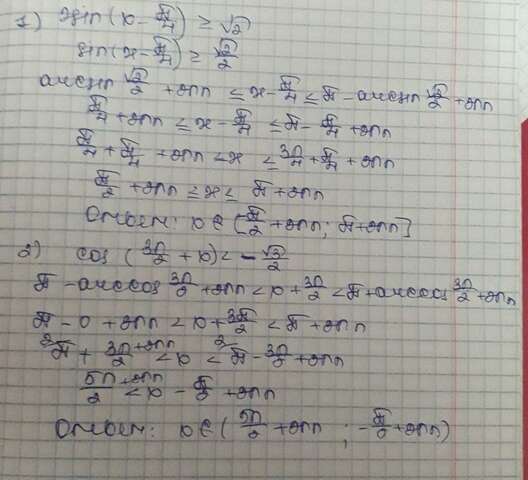 1) 2sin(x - π/4) ≥ √2
sin(x - π/4) ≥ √2/2
arcsin √2/2 + 2πn ≤ x - π/4 ≤ π - arcsin √2/2 + 2πn
π/4 + 2πn ≤ x - π/4 ≤ π - π/4 + 2πn
π/4 + π/4 + 2πn < x ≤ 3π/4 + π/4 + 2πn
π/2 + 2πn ≤ x ≤ π + 2πn
Ответ: x ∈ [π/2 + 2πn; π + 2πn]
2) cos(3π/2 + x) < -√3/2
π - arccos 3π/2 + 2πn < x + 3π/2 < π + arccos 3π/2 + 2πn
π - 0 + 2πn < x + 3π/2 < π + 2πn
π + 3π/2 + 2πn < x < π - 3π/2 + 2πn
5π/2 + 2πn < x - π/2 + 2πn
Ответ: x ∈ (5π/2 + 2πn ; -π/2 + 2πn)